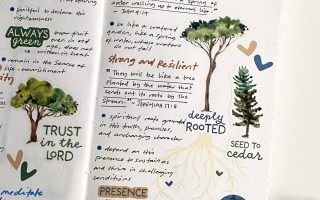 fruitful to declare this
righteousness
ALWAYS
green
bear fruit
even in old
age, does not
wither in heat
remain in the source of
life - nourishment
TRUST
in the
LORD
meditate
a spring of
water welling up to eternal life."
- John 4:14
be like a watered
garden, like a spring
of water, whose waters
do not fail
strong and Resilient
"They will be like a tree
planted by the water that
sends out its roots by the
stream." - Jeremiah 17:8
spiritual roots grounded
in His truth, promises,
and unchanging character
depend on His
presence to sustain us
and thrive in challenging
conditions
PRESENCE
deeply
ROOTED
SEED TO
cedar